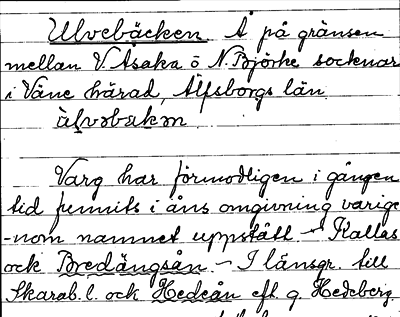 Ulvebäcken Å på gränsen
mellan V. Åsaka o N. Björke socknar
i Väne härad, Älfsborgs län
ùlvəbækən
Varg har förmodligen i gången
tid funnits i åns omgivning varige-
nom namnet uppstått – Kallas
ock Bredängsån – I länsgr. till
Skarab. l. ock Hedeån eft. g. Hedeberg